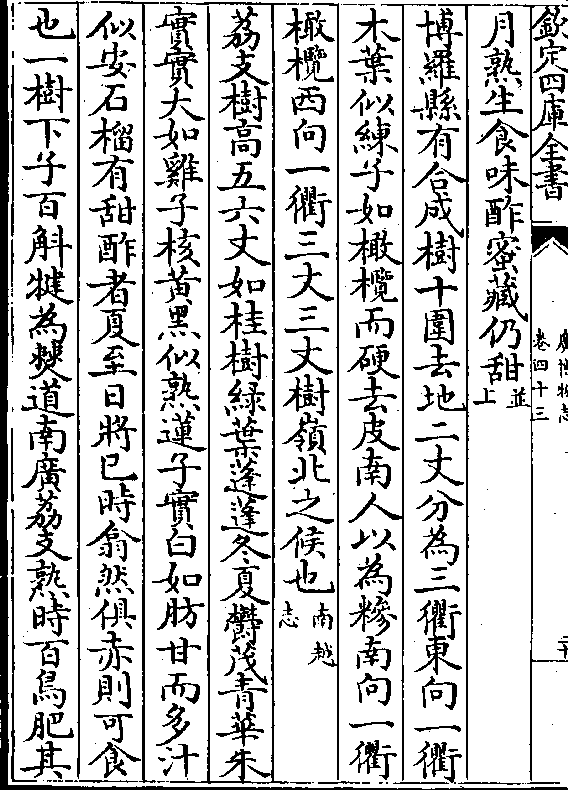 欽定四庫全書
廣博物志
卷四十三
月熟生食味酢蜜藏仍甜並上
博羅縣有合成樹十圍去地二丈分為三衢東向一衢
木葉似練子如橄欖而硬去皮南人以為糝南向一衢
橄欖西向一衢三丈三丈樹嶺北之候也南越志
荔支樹高五六丈如桂樹綠葉蓬蓬冬夏欝茂青華朱
實實大如雞子核黃黑似熟蓮子實白如肪甘而多汁
似安石榴有甜酢者夏至日將已時翕然俱赤則可食
也一樹下子百斛犍為僰道南廣荔支熟時百鳥肥其